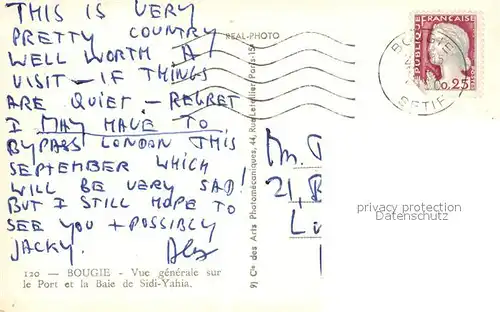 THIS IS VERY
PRETTY COUNTRY
WELL WORTH A
VISIT — IF THINGS
ARE QUIET — REGRET
I MAY HAVE TO
BYPASS LONDON THIS
SEPTEMBER WHICH
WILL BE VERY SAD!
BUT I STILL HOPE TO
SEE YOU + POSSIBLY
JACKY.
120 — BOUGIE - Vue générale sur
le Port et la Baie de Sidi-Yahia.
REAL-PHOTO
9) Cie des Arts Photomécaniques, 44, Rue Letellier, Paris-15
21,
REPUBLIQUE FRANÇAISE
0,25
SETIF
privacy protection
Datenschutz